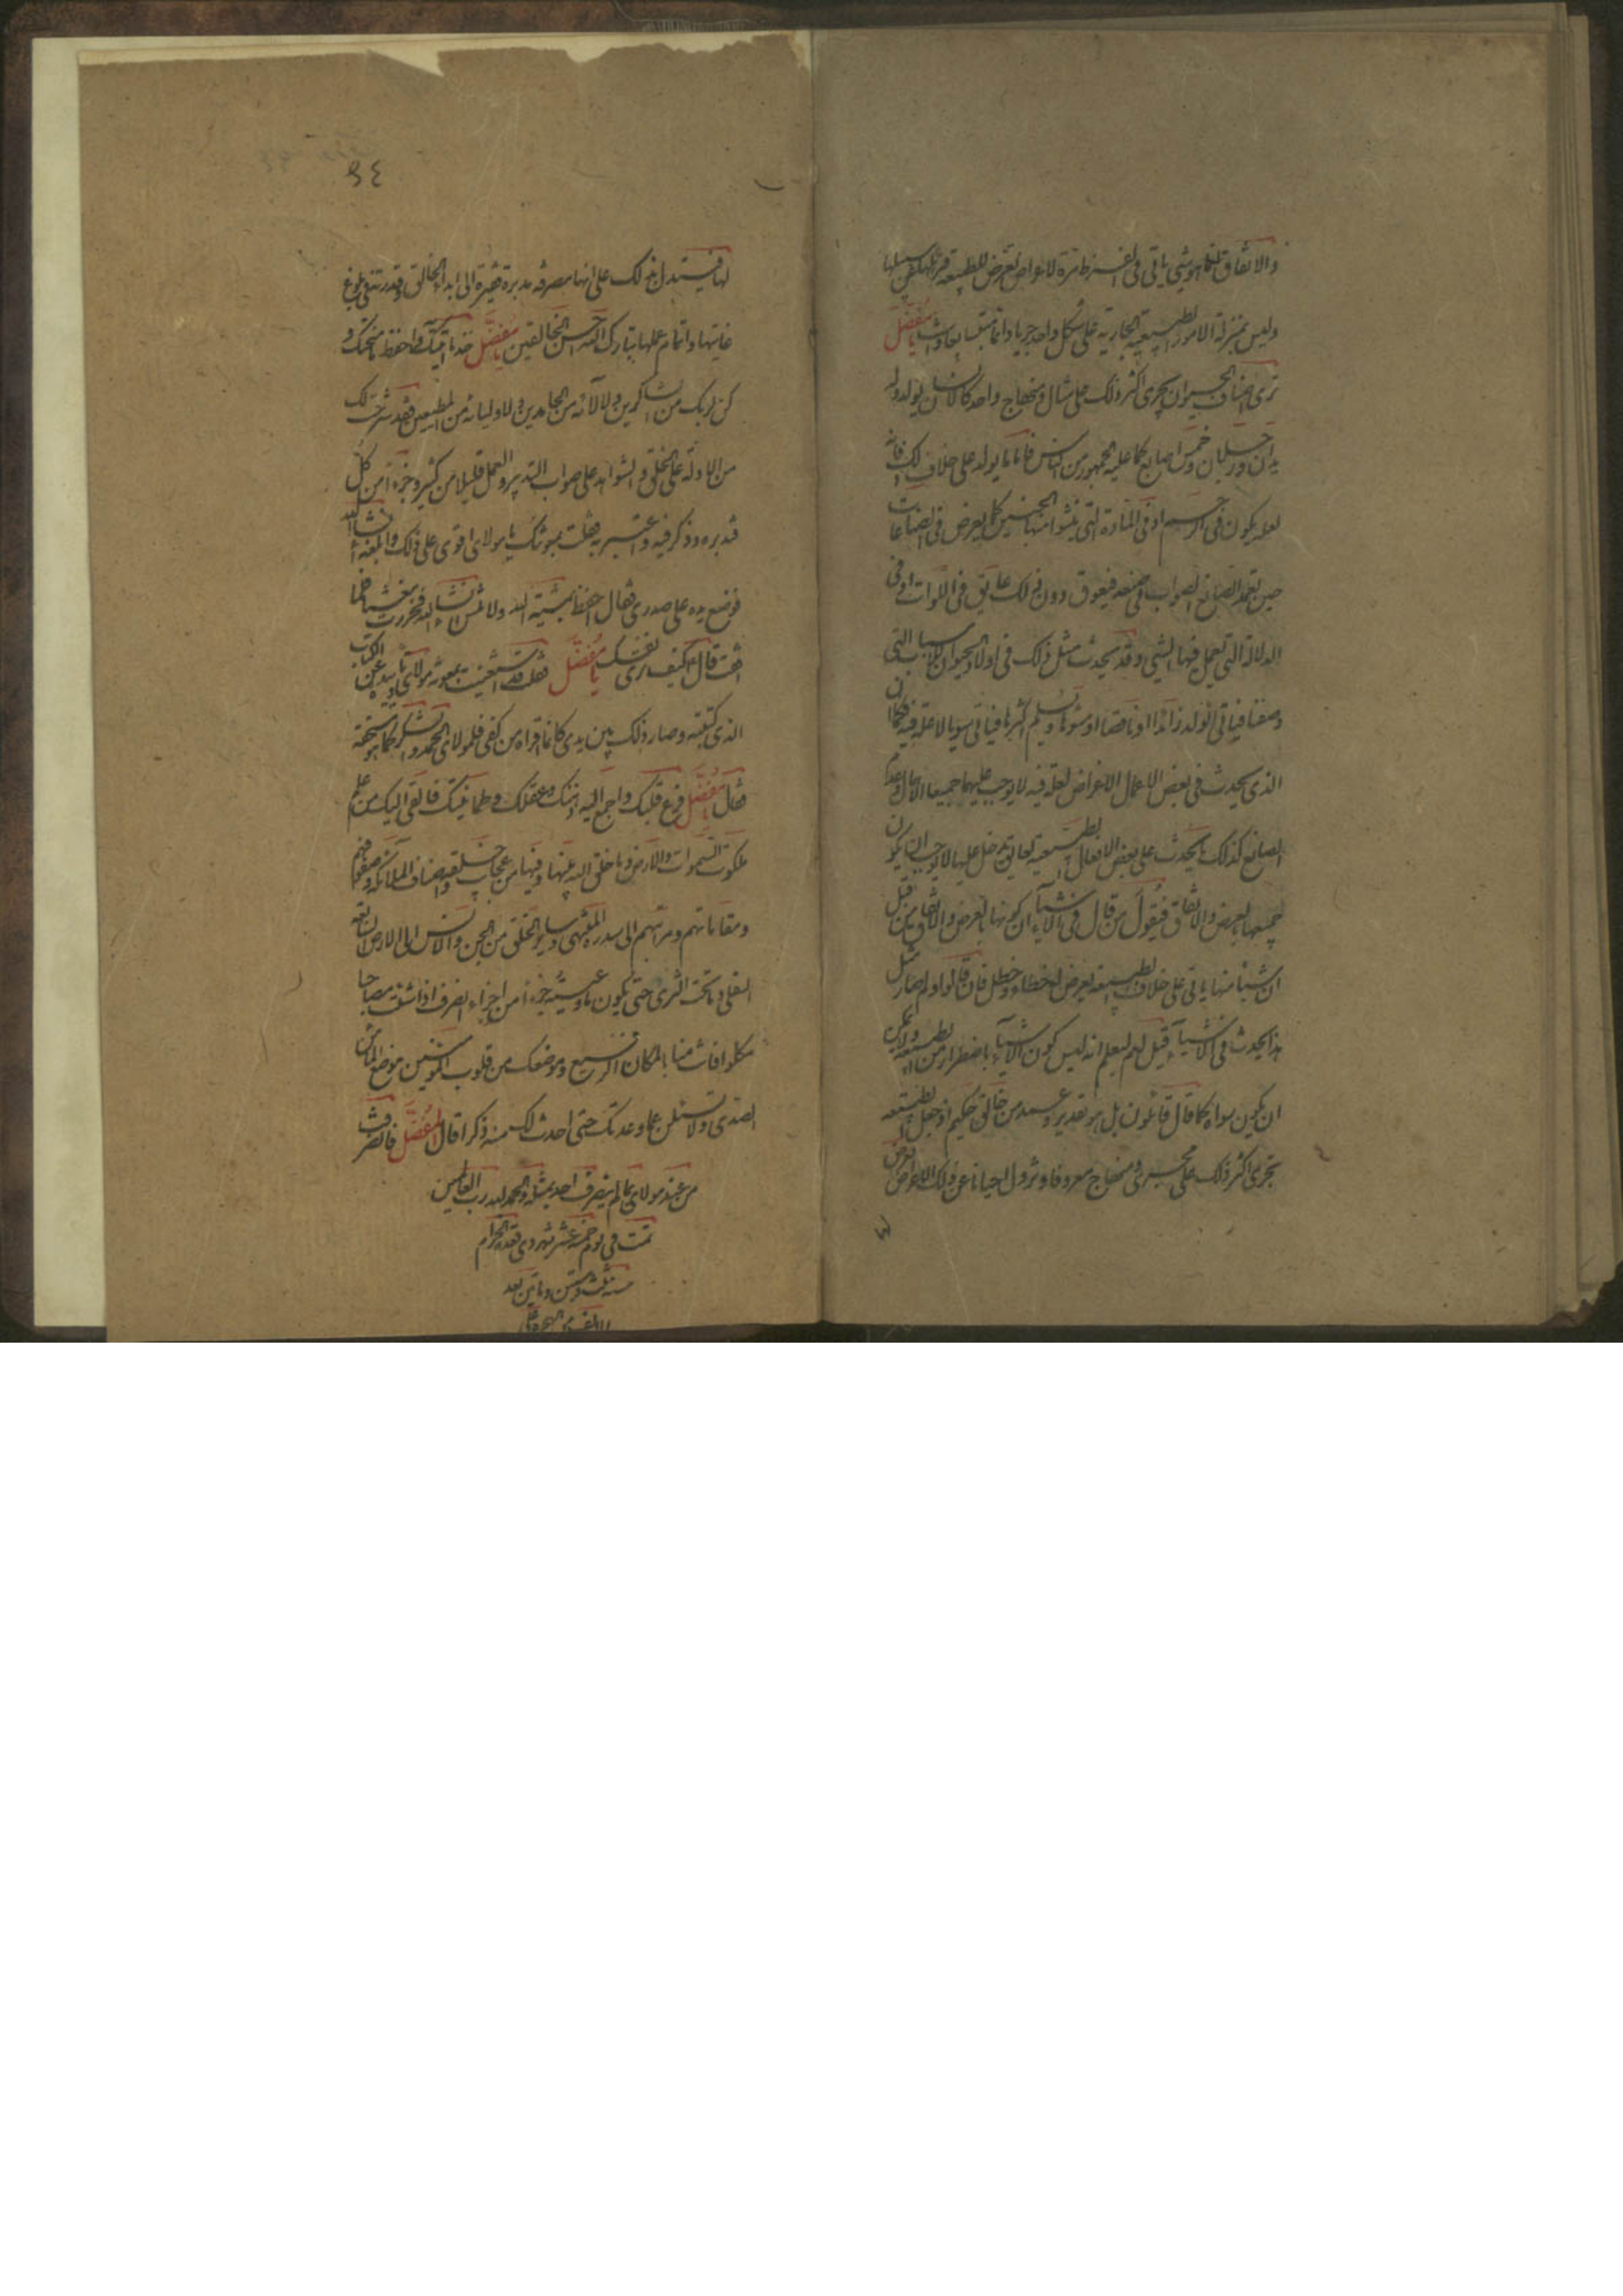 والاتفاق فانما هو شي ياتي في الفرط مرة لاعراض تعرض للطبيعة فتزيلها عن سبيلها
وليس بمنزلة الامور الطبيعية الجارية على شكل واحد جريا دائما متتابعا وانت يا مفضل
ترى اصناف الحيوان يجري اكثر ذلك على مثال ومنهاج واحد كالانسان يولد وله
يدان ورجلان وخمس اصابع كما عليه الجمهور من الناس فاما ما يولد على خلاف ذلك فانه
لعلة يكون في الرحم او في المادة التي ينشوا منها الجنين كما يعرض في الصناعات
حين يتعمد الصانع الصواب في صنعه فيعوق دون ذلك عايق في الادوات او في
الدلالة التي تعمل فيها الشي وقد يحدث مثل ذلك في اولاد الحيوان للاسباب التي
وصفنا فياتي الولد زائدا او ناقصا او مشوها ويسلم اكثرها فياتي سويا لا علة فيه فكما ان
الذي يحدث في بعض الاعمال الاعراض لعلة فيه لا يوجب عليها جميعا الاهمال وعدم
الصانع كذلك ما يحدث على بعض الافعال الطبيعية لعايق يدخل عليها لا يوجب ان يكون
جميعها بالعرض والاتفاق فيقول من قال في الاشياء ان كونها بالعرض والاتفاق من قبل
ان شيئا منها ياتي على خلاف الطبيعة يعرض له خطاء وخطل فان قالوا ولم صار مثل
هذا يحدث في الاشياء قيل لهم ليعلم انه ليس كون الاشياء باضطرار من الطبيعة ولا يمكن
ان يكون سواه كما قال قائلون بل هو تقدير وعمد من خالق حكيم اذ جعل الطبيعة
تجري اكثر ذلك على مجرى ومنهاج معروف وتزول احيانا عن ذلك لاعراض تعرض
٩٤
لها فيستدل بذلك على انها مصرفة مدبرة فقيرة الى ابداء الخالق وقدرته في بلوغ
غايتها واتمام عملها تبارك الله احسن الخالقين يا مفضل خذ ما اتيتك واحفظ ما منحتك و
كن لربك من الشاكرين ولالائه من الحامدين ولاوليائه من المطيعين فقد شرحت لك
من الادلة على الخلق والشواهد على صواب التدبير والعمد قليلا من كثير وجزءا من كل
فتدبره وفكر فيه واعتبر به فقلت بمعونتك يا مولاي اقوى على ذلك وابلغه ان شاء الله
فوضع يده على صدري فقال احفظ بمشية الله ولا تنس ان شاء الله فخررت مغشيا علي فلما
افقت قال كيف ترى نفسك يا مفضل فقلت قد استغنيت بمعونة مولاي وتاييده عن الكتاب
الذي كتبته وصار ذلك بين يدي كانما اقراه من كفي فلمولاي الحمد والشكر كما هو مستحقه
فقال يا مفضل فرغ قلبك واجمع اليه ذهنك وعقلك وطمانينتك فسالقي اليك من علم
ملكوت السموات والارض وما خلق الله بينهما وفيهما من عجايب خلقه واصناف الملائكة وصفوفهم
ومقاماتهم ومراتبهم الى سدرة المنتهى وساير الخلق من الجن والانس الى الارض السابعة
السفلى وما تحت الثرى حتى يكون ما وعيته جزءا من اجزاء انصرف اذا شئت مصاحبا
مكلوا فانت منا بالمكان الرفيع وموضعك من قلوب المؤمنين موضع الماء من
الصدى ولا تسئلن عما وعدتك حتى احدث لك منه ذكرا قال المفضل فانصرفت
من عند مولاي بما لم ينصرف احد بمثله والحمد لله رب العالمين
تمت في يوم خمسة عشر شهر ذي قعدة الحرام
سنة ثلث وستين ومأتين بعد
الالف من الهجرة